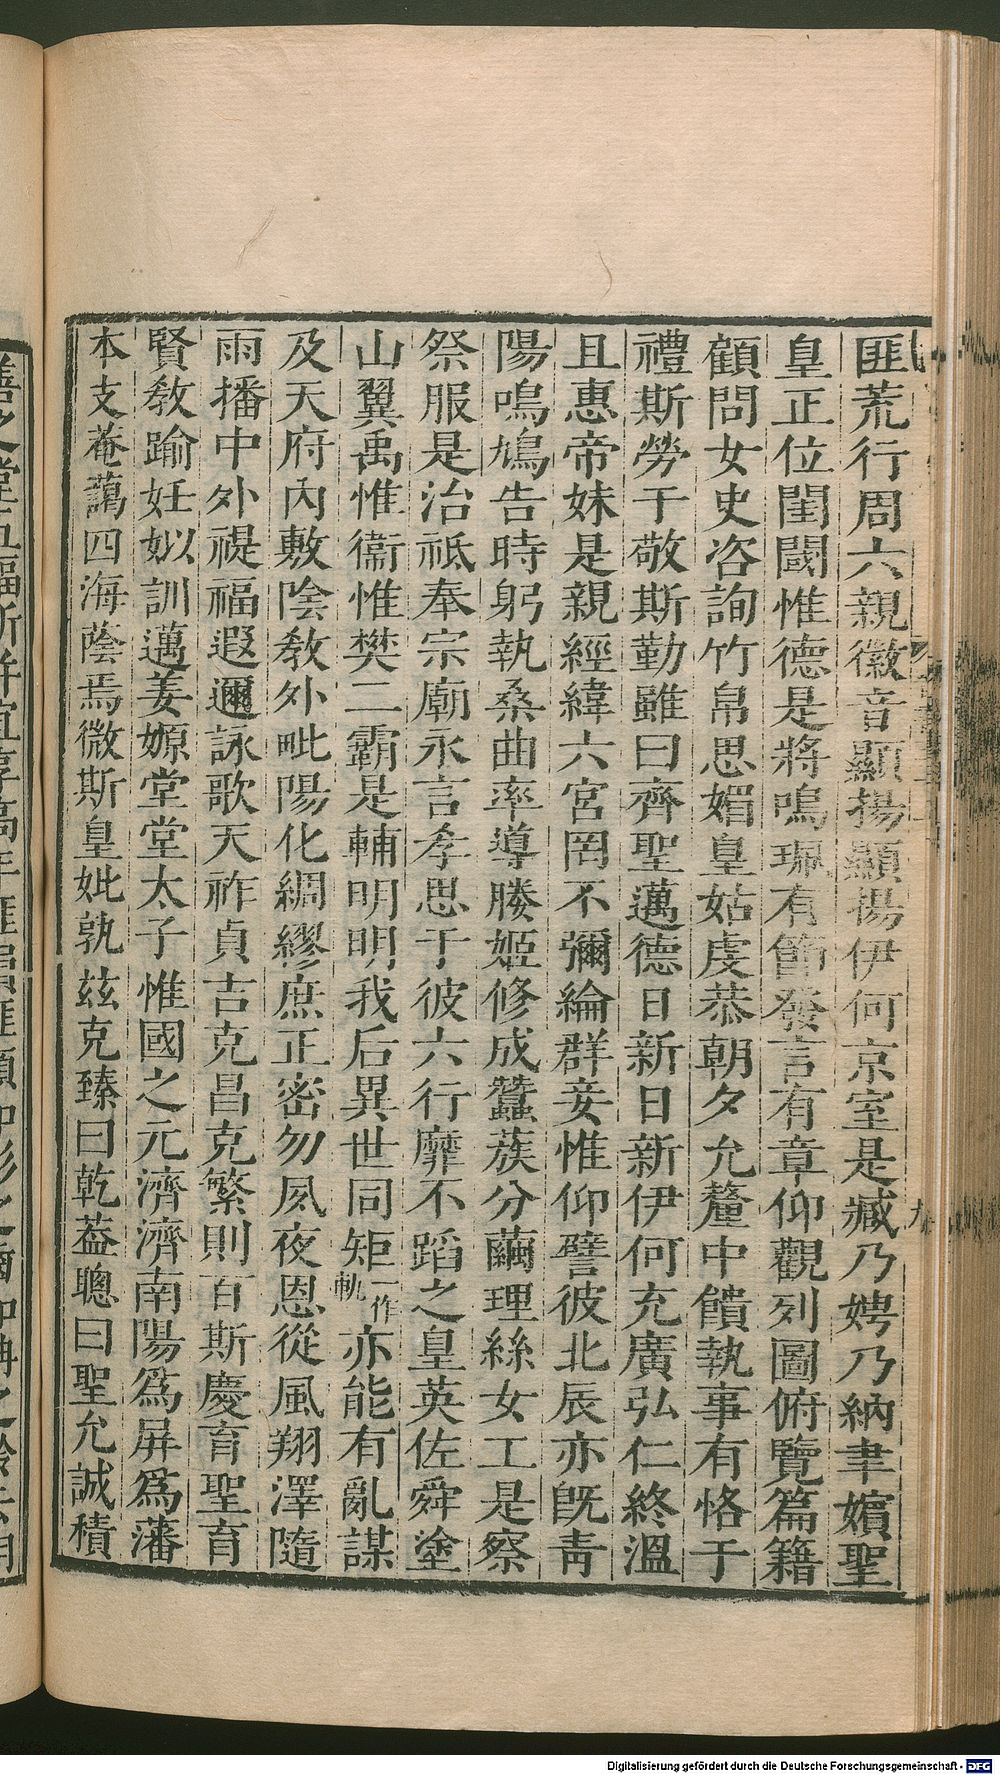 匪荒行周六親徽音顯揚顯揚伊何京室是臧乃娉乃納聿嬪聖
皇正位閨閫惟德是將鳴珮有節發言有章仰觀列圖俯覽篇籍
顧問女史咨詢竹帛思媚皇姑虔恭朝夕允釐中饋執事有恪于
禮斯勞于敬斯勤雖曰齊聖邁德日新日新伊何克廣弘仁終溫
且惠帝妹是親經緯六宮罔不彌綸群妾惟仰譬彼北辰亦旣靑
陽鳴鳩告時躬執桑曲率導媵姬修成蠶蔟分繭理絲女工是察
祭服是治祗奉宗廟永言孝思于彼六行靡不蹈之皇英佐舜塗
山翼禹惟衞惟樊二霸是輔明明我后異世同矩一作軌亦能有亂謀
及天府內敷陰敎外毗陽化綢繆庶正密勿夙夜恩從風翔澤隨
雨播中外禔福遐邇詠歌天祚貞吉克昌克繁則百斯慶育聖育
賢敎踰妊姒訓邁姜嫄堂堂太子惟國之元濟濟南陽爲屏爲藩
本支菴藹四海蔭焉微斯皇妣孰茲克臻曰乾葢聰曰聖允誠積
Digitalisierung gefördert durch die Deutsche Forschungsgemeinschaft - DFG